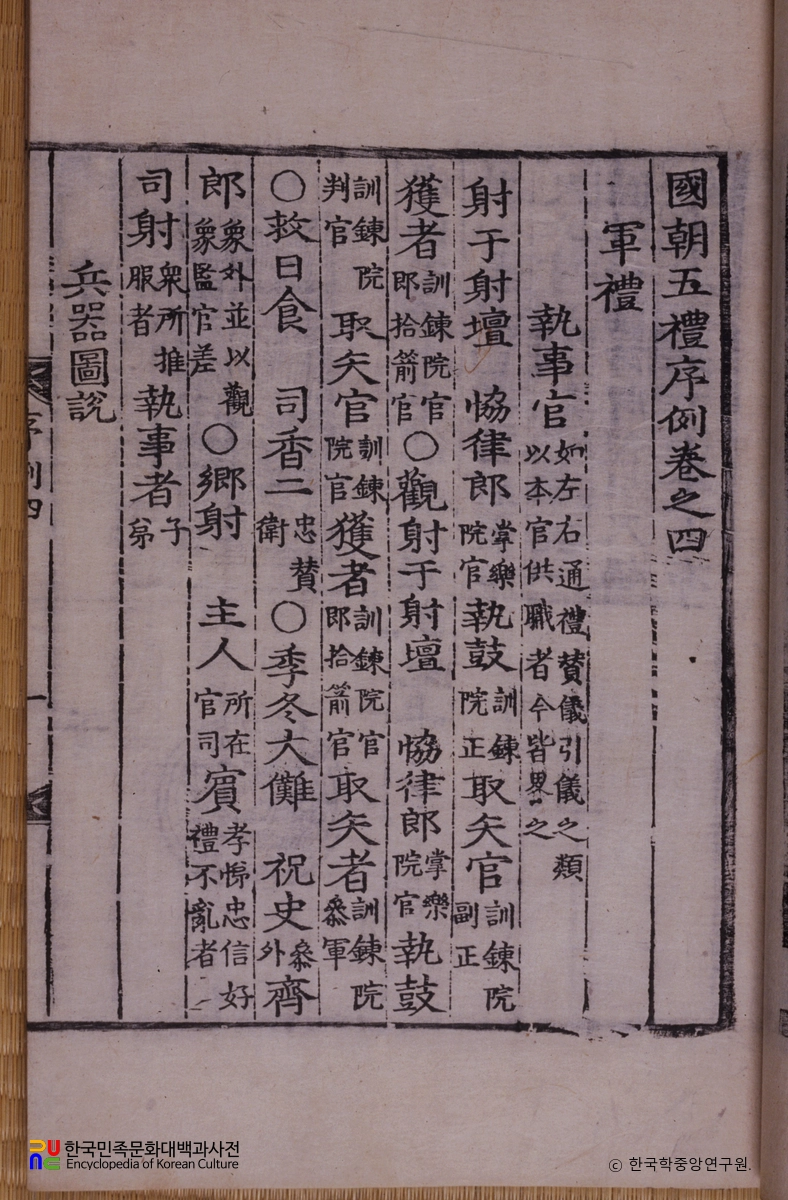 國朝五禮序例卷之四
軍禮
執事官如左右通禮賛儀引儀之類以本官供職者今皆畧之
射于射壇 協律郎掌樂院官執鼓訓鍊院正取矢官訓鍊院副正
獲者訓鍊院官即拾箭官○觀射于射壇 協律郎掌樂院官執鼓
訓鍊院判官取矢官訓鍊院官獲者訓鍊院官即拾箭官取矢者訓鍊院叅軍
○救日食 司香二忠賛衛○季冬大儺 祝史叅外齊
郎叅外並以觀象監官差○鄕射 主人所在官司賓孝悌忠信好禮不亂者
司射衆所推服者執事者子弟
兵器圖說
序例四 一
한국민족문화대백과사전
Encyclopedia of Korean Culture
© 한국학중앙연구원.